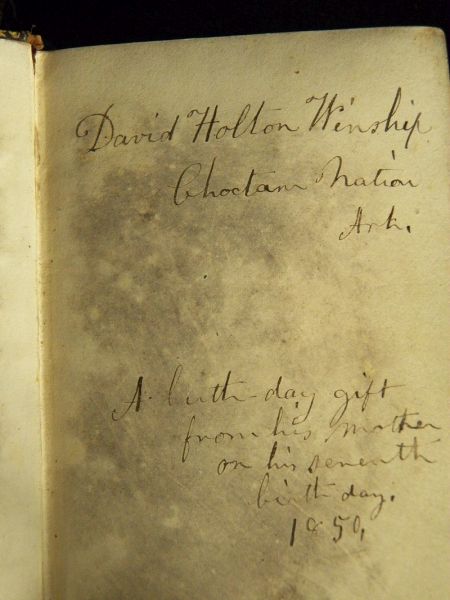 David Holton Winship
Choctaw Nation
Ark.
A birth-day gift
from his mother
on his seventh
birth day.
1850.